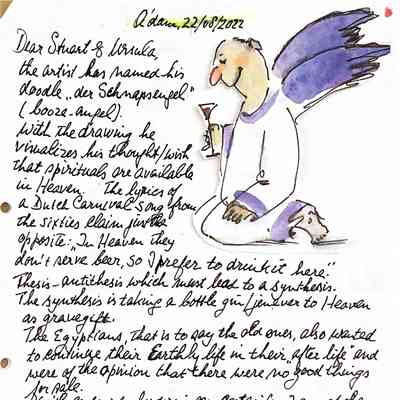 A'dam, 22/08/2022
Dear Stuart & Ursula,
the artist has named his
doodle "der Schnapsengel"
(booze-angel).
With the drawing he
visualizes his thought/wish
that spirituals are available
in Heaven. The lyrics of
a Dutch Carnaval song from
the sixties claim just the
opposite: "In Heaven they
don't serve beer, so I prefer to drink it here."
Thesis-antithesis which must lead to a synthesis.
The synthesis is taking a bottle gin/jenever to Heaven
as gravegift.
The Egyptians, that is to say the old ones, also wanted
to continue their Earthly life in their "after life" and
were of the opinion that there were no good things
for sale.